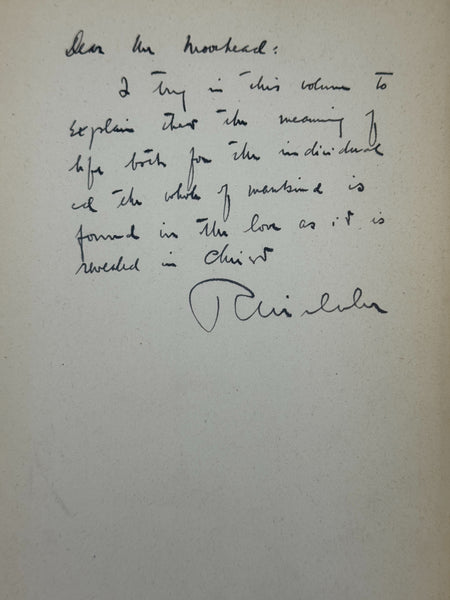 Dear Mr Moorhead:
I try in this volume to
explain that the meaning of
life both for the individual
and the whole of mankind is
found in the love as it is
revealed in Christ
RNiebuhr